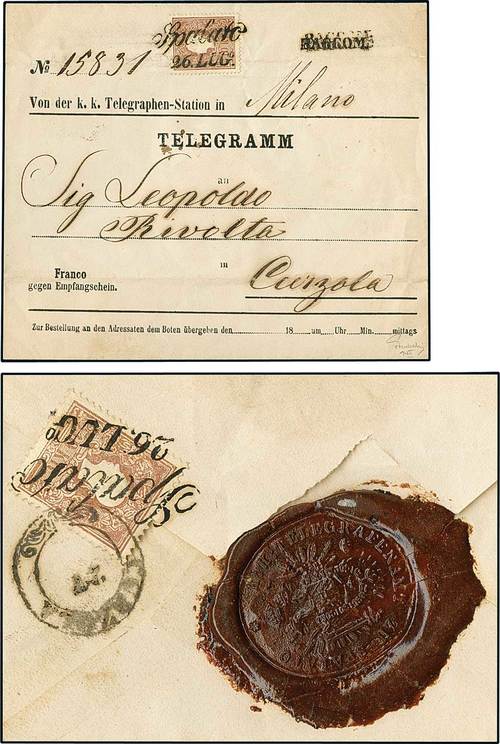 Spalato
26. LUG.
RACCOM.
No 15831
Von der k. k. Telegraphen-Station in Milano
TELEGRAMM
an
Sig Leopoldo
Rivolta
in
Curzola
Franco
gegen Empfangschein.
Zur Bestellung an den Adressaten dem Boten übergeben den 18 um Uhr Min. mittags.
Spalato
26. LUG.
27
TELEGRAFEN